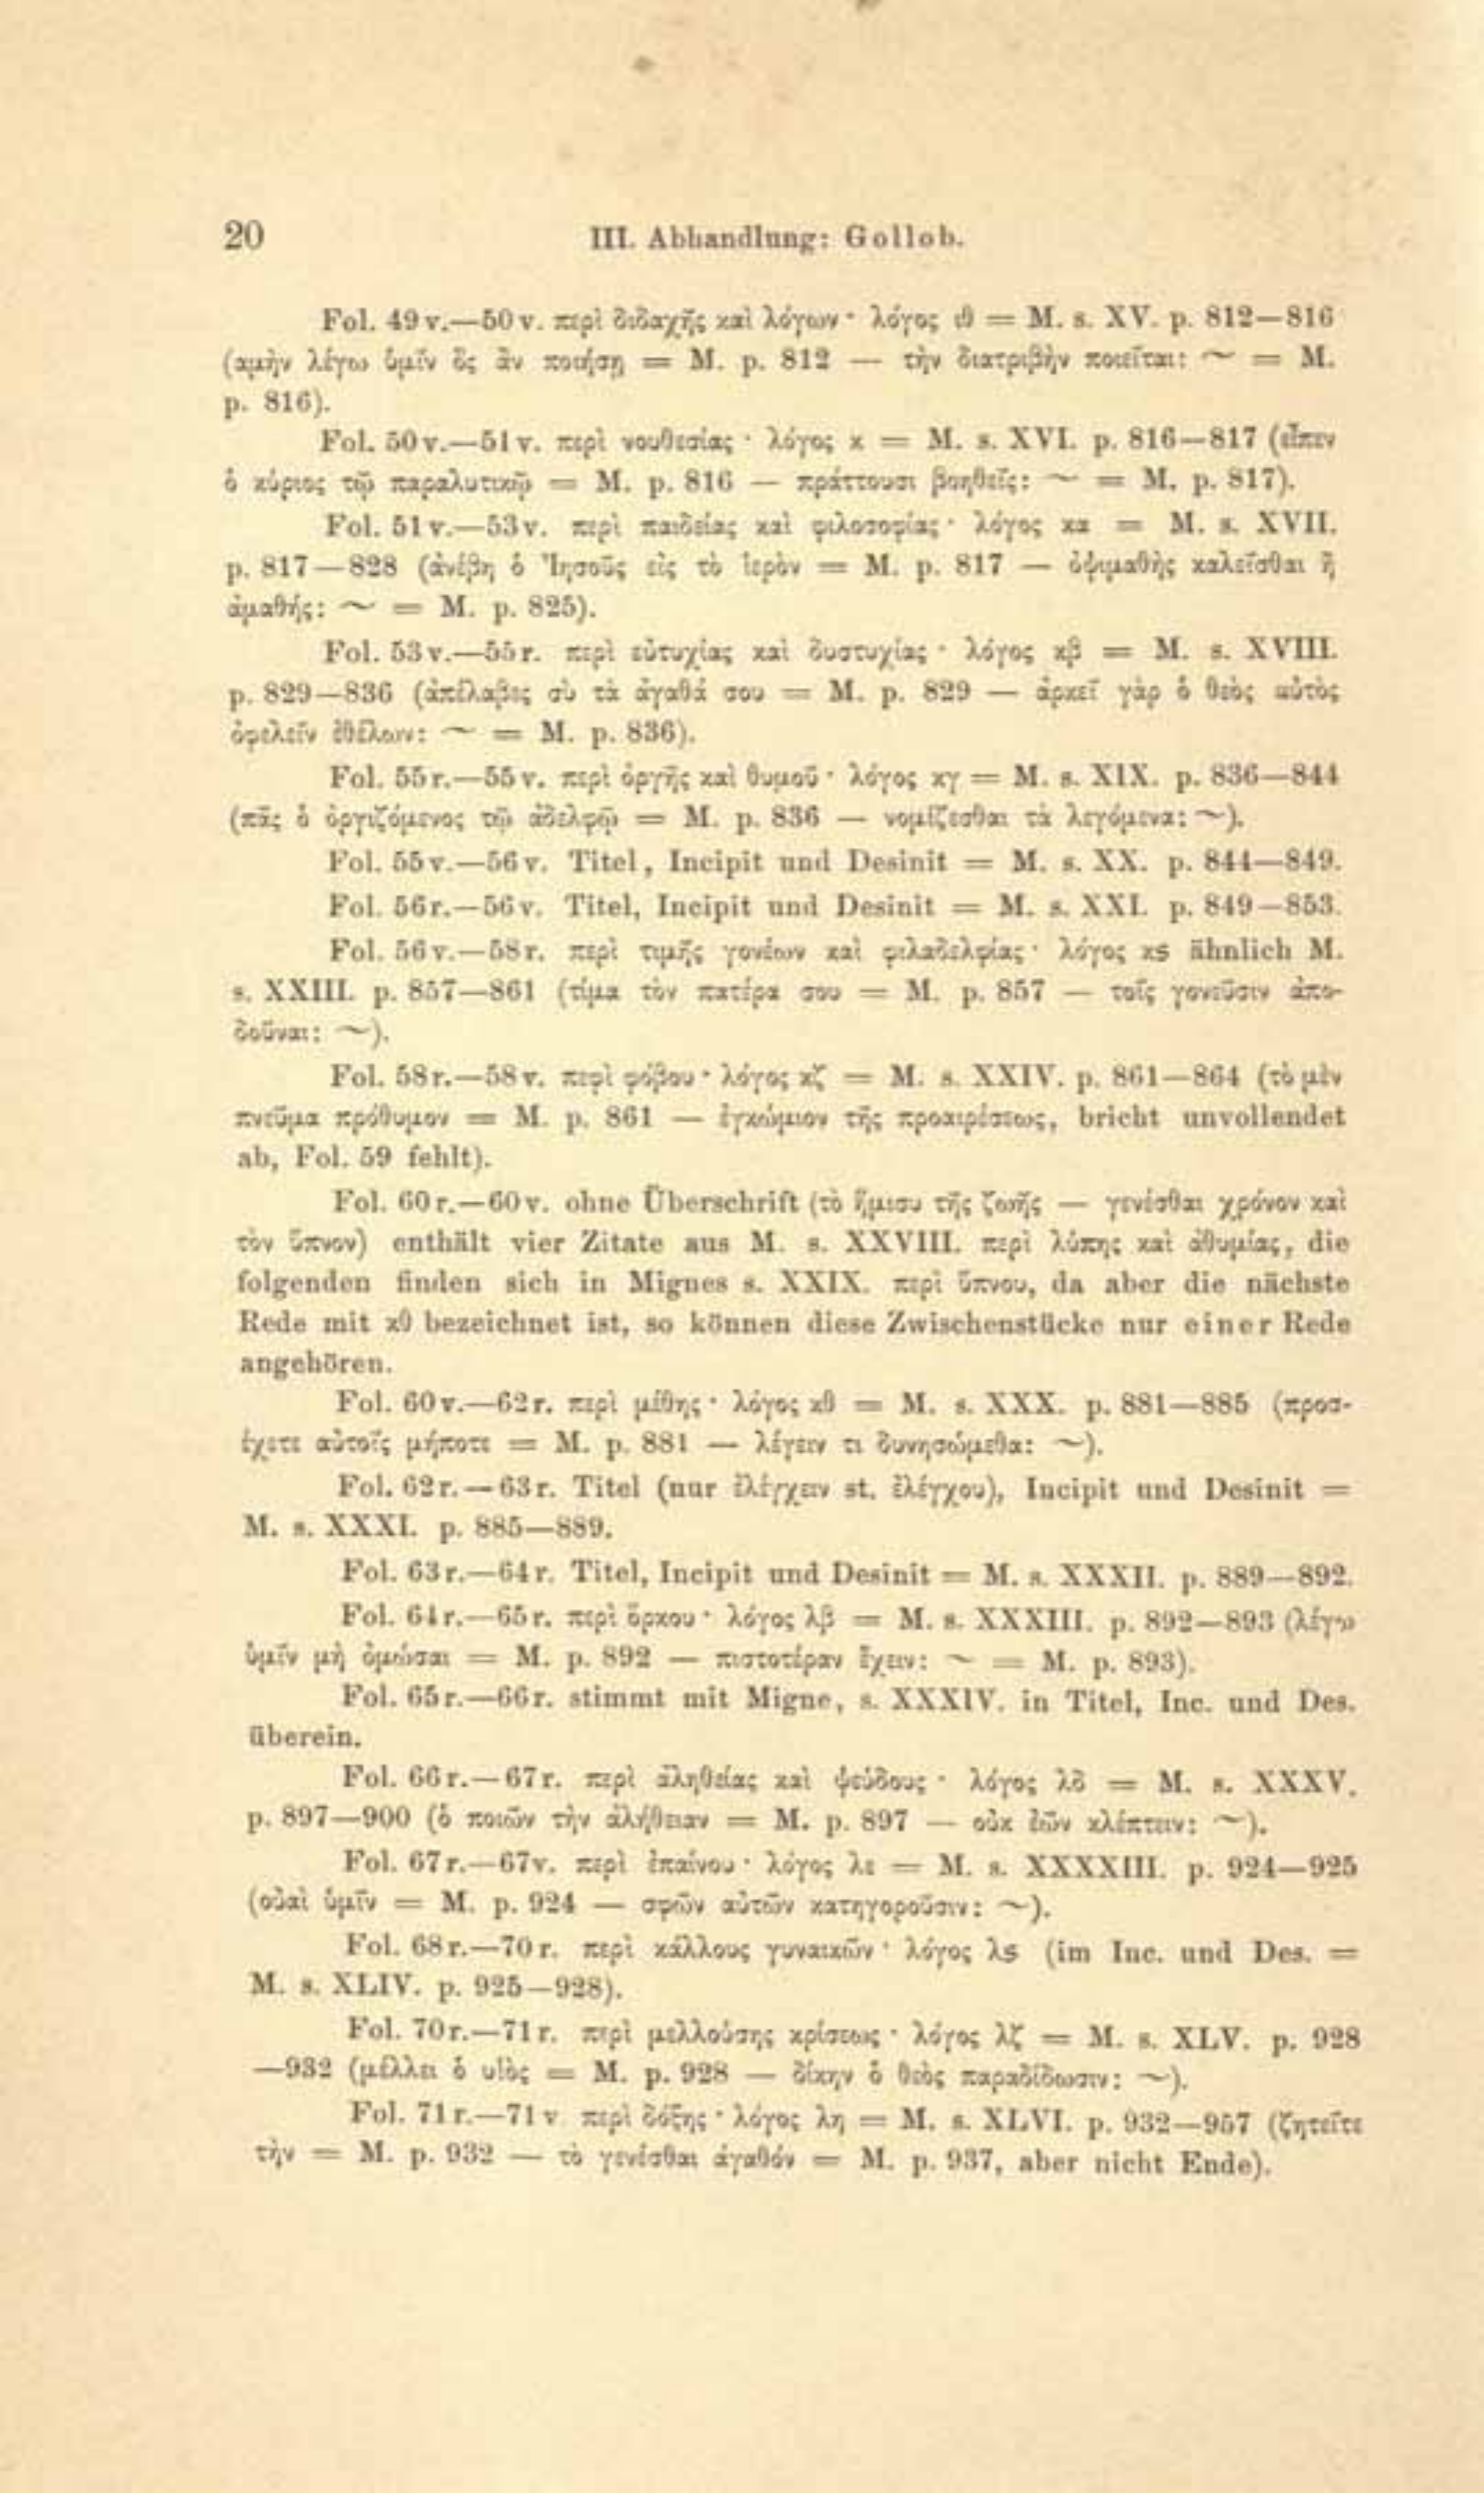 20
III. Abhandlung: Gollob.
Fol. 49 v.—50 v. περὶ διδαχῆς καὶ λόγων · λόγος ιθ = M. s. XV. p. 812—816
(αμὴν λέγω ὑμῖν ὃς ἂν ποιήσῃ = M. p. 812 — τὴν διατριβὴν ποιεῖται: ~ = M.
p. 816).
Fol. 50 v.—51 v. περὶ νουθεσίας · λόγος κ = M. s. XVI. p. 816—817 (εἶπεν
ὁ κύριος τῷ παραλυτικῷ = M. p. 816 — πράττουσι βοηθεῖς: ~ = M. p. 817).
Fol. 51 v.—53 v. περὶ παιδείας καὶ φιλοσοφίας · λόγος κα = M. s. XVII.
p. 817—828 (ἀνέβη ὁ Ἰησοῦς εἰς τὸ ἱερὸν = M. p. 817 — ὀψιμαθὴς καλεῖσθαι ἢ
ἀμαθής: ~ = M. p. 825).
Fol. 53 v.—55 r. περὶ εὐτυχίας καὶ δυστυχίας · λόγος κβ = M. s. XVIII.
p. 829—836 (ἀπέλαβες σὺ τὰ ἀγαθά σου = M. p. 829 — ἀρκεῖ γὰρ ὁ θεὸς αὐτὸς
ὀφελεῖν ἐθέλων: ~ = M. p. 836).
Fol. 55 r.—55 v. περὶ ὀργῆς καὶ θυμοῦ · λόγος κγ = M. s. XIX. p. 836—844
(πᾶς ὁ ὀργιζόμενος τῷ ἀδελφῷ = M. p. 836 — νομίζεσθαι τὰ λεγόμενα: ~).
Fol. 55 v.—56 v. Titel, Incipit und Desinit = M. s. XX. p. 844—849.
Fol. 56 r.—56 v. Titel, Incipit und Desinit = M. s. XXI. p. 849—853.
Fol. 56 v.—58 r. περὶ τιμῆς γονέων καὶ φιλαδελφίας · λόγος κς ähnlich M.
s. XXIII. p. 857—861 (τίμα τὸν πατέρα σου = M. p. 857 — τοῖς γονεῦσιν ἀπο-
δοῦναι: ~).
Fol. 58 r.—58 v. περὶ φόβου · λόγος κζ = M. s. XXIV. p. 861—864 (τὸ μὲν
πνεῦμα πρόθυμον = M. p. 861 — ἐγκώμιον τῆς προαιρέσεως, bricht unvollendet
ab, Fol. 59 fehlt).
Fol. 60 r.—60 v. ohne Überschrift (τὸ ἥμισυ τῆς ζωῆς — γενέσθαι χρόνον καὶ
τὸν ὕπνον) enthält vier Zitate aus M. s. XXVIII. περὶ λύπης καὶ ἀθυμίας, die
folgenden finden sich in Mignes s. XXIX. περὶ ὕπνου, da aber die nächste
Rede mit κθ bezeichnet ist, so können diese Zwischenstücke nur einer Rede
angehören.
Fol. 60 v.—62 r. περὶ μέθης · λόγος κθ = M. s. XXX. p. 881—885 (προσ-
έχετε αὐτοῖς μήποτε = M. p. 881 — λέγειν τι δυνησώμεθα: ~).
Fol. 62 r.—63 r. Titel (nur ἐλέγχειν st. ἐλέγχου), Incipit und Desinit =
M. s. XXXI. p. 885—889.
Fol. 63 r.—64 r. Titel, Incipit und Desinit = M. s. XXXII. p. 889—892.
Fol. 64 r.—65 r. περὶ ὅρκου · λόγος λβ = M. s. XXXIII. p. 892—893 (λέγω
ὑμῖν μὴ ὀμώσαι = M. p. 892 — πιστοτέραν ἔχειν: ~ = M. p. 893).
Fol. 65 r.—66 r. stimmt mit Migne, s. XXXIV. in Titel, Inc. und Des.
überein.
Fol. 66 r.—67 r. περὶ ἀληθείας καὶ ψεύδους · λόγος λδ = M. s. XXXV.
p. 897—900 (ὁ ποιῶν τὴν ἀλήθειαν = M. p. 897 — οὐκ ἐῶν κλέπτειν: ~).
Fol. 67 r.—67 v. περὶ ἐπαίνου · λόγος λε = M. s. XXXXIII. p. 924—925
(οὐαὶ ὑμῖν = M. p. 924 — σφῶν αὐτῶν κατηγοροῦσιν: ~).
Fol. 68 r.—70 r. περὶ κάλλους γυναικῶν · λόγος λς (im Inc. und Des. =
M. s. XLIV. p. 925—928).
Fol. 70 r.—71 r. περὶ μελλούσης κρίσεως · λόγος λζ = M. s. XLV. p. 928
—932 (μέλλει ὁ υἱὸς = M. p. 928 — δίκην ὁ θεὸς παραδίδωσιν: ~).
Fol. 71 r.—71 v περὶ δόξης · λόγος λη = M. s. XLVI. p. 932—957 (ζητεῖτε
τὴν = M. p. 932 — τὸ γενέσθαι ἀγαθόν = M. p. 937, aber nicht Ende).